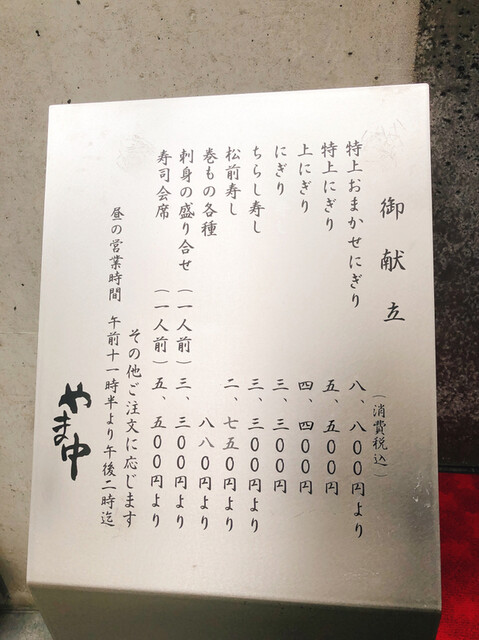 御献立
（消費税込）
特上おまかせにぎり 八、八〇〇円より
特上にぎり 五、五〇〇円
上にぎり 四、四〇〇円
にぎり 三、三〇〇円
ちらし寿し 三、三〇〇円より
松前寿し 二、七五〇円より
巻もの各種 八八〇円より
刺身の盛り合せ（一人前）三、三〇〇円より
寿司会席（一人前）五、五〇〇円より
その他ご注文に応じます
昼の営業時間 午前十一時半より午後二時迄
やま中